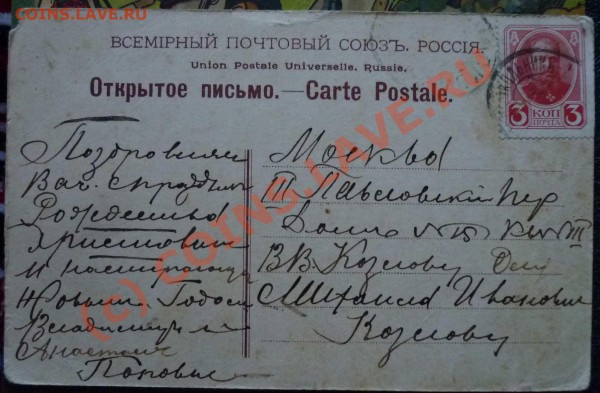 COINS.LAVE.RU
ВСЕМІРНЫЙ ПОЧТОВЫЙ СОЮЗЪ. РОССІЯ.
Union Postale Universelle. Russie.
Открытое письмо.—Carte Postale.
3 КОП 3
ПОЧТА
Поздровляем
Вас с
Рождеством
Христовым
и наступающим
Новым Годом
Владимир и
Анастасия
Поповы
Москва
III Павловский пер
Дом № кв III
В В Козлову Для
Михаила Ивановича
Козлову
(c) COINS.LAVE.RU